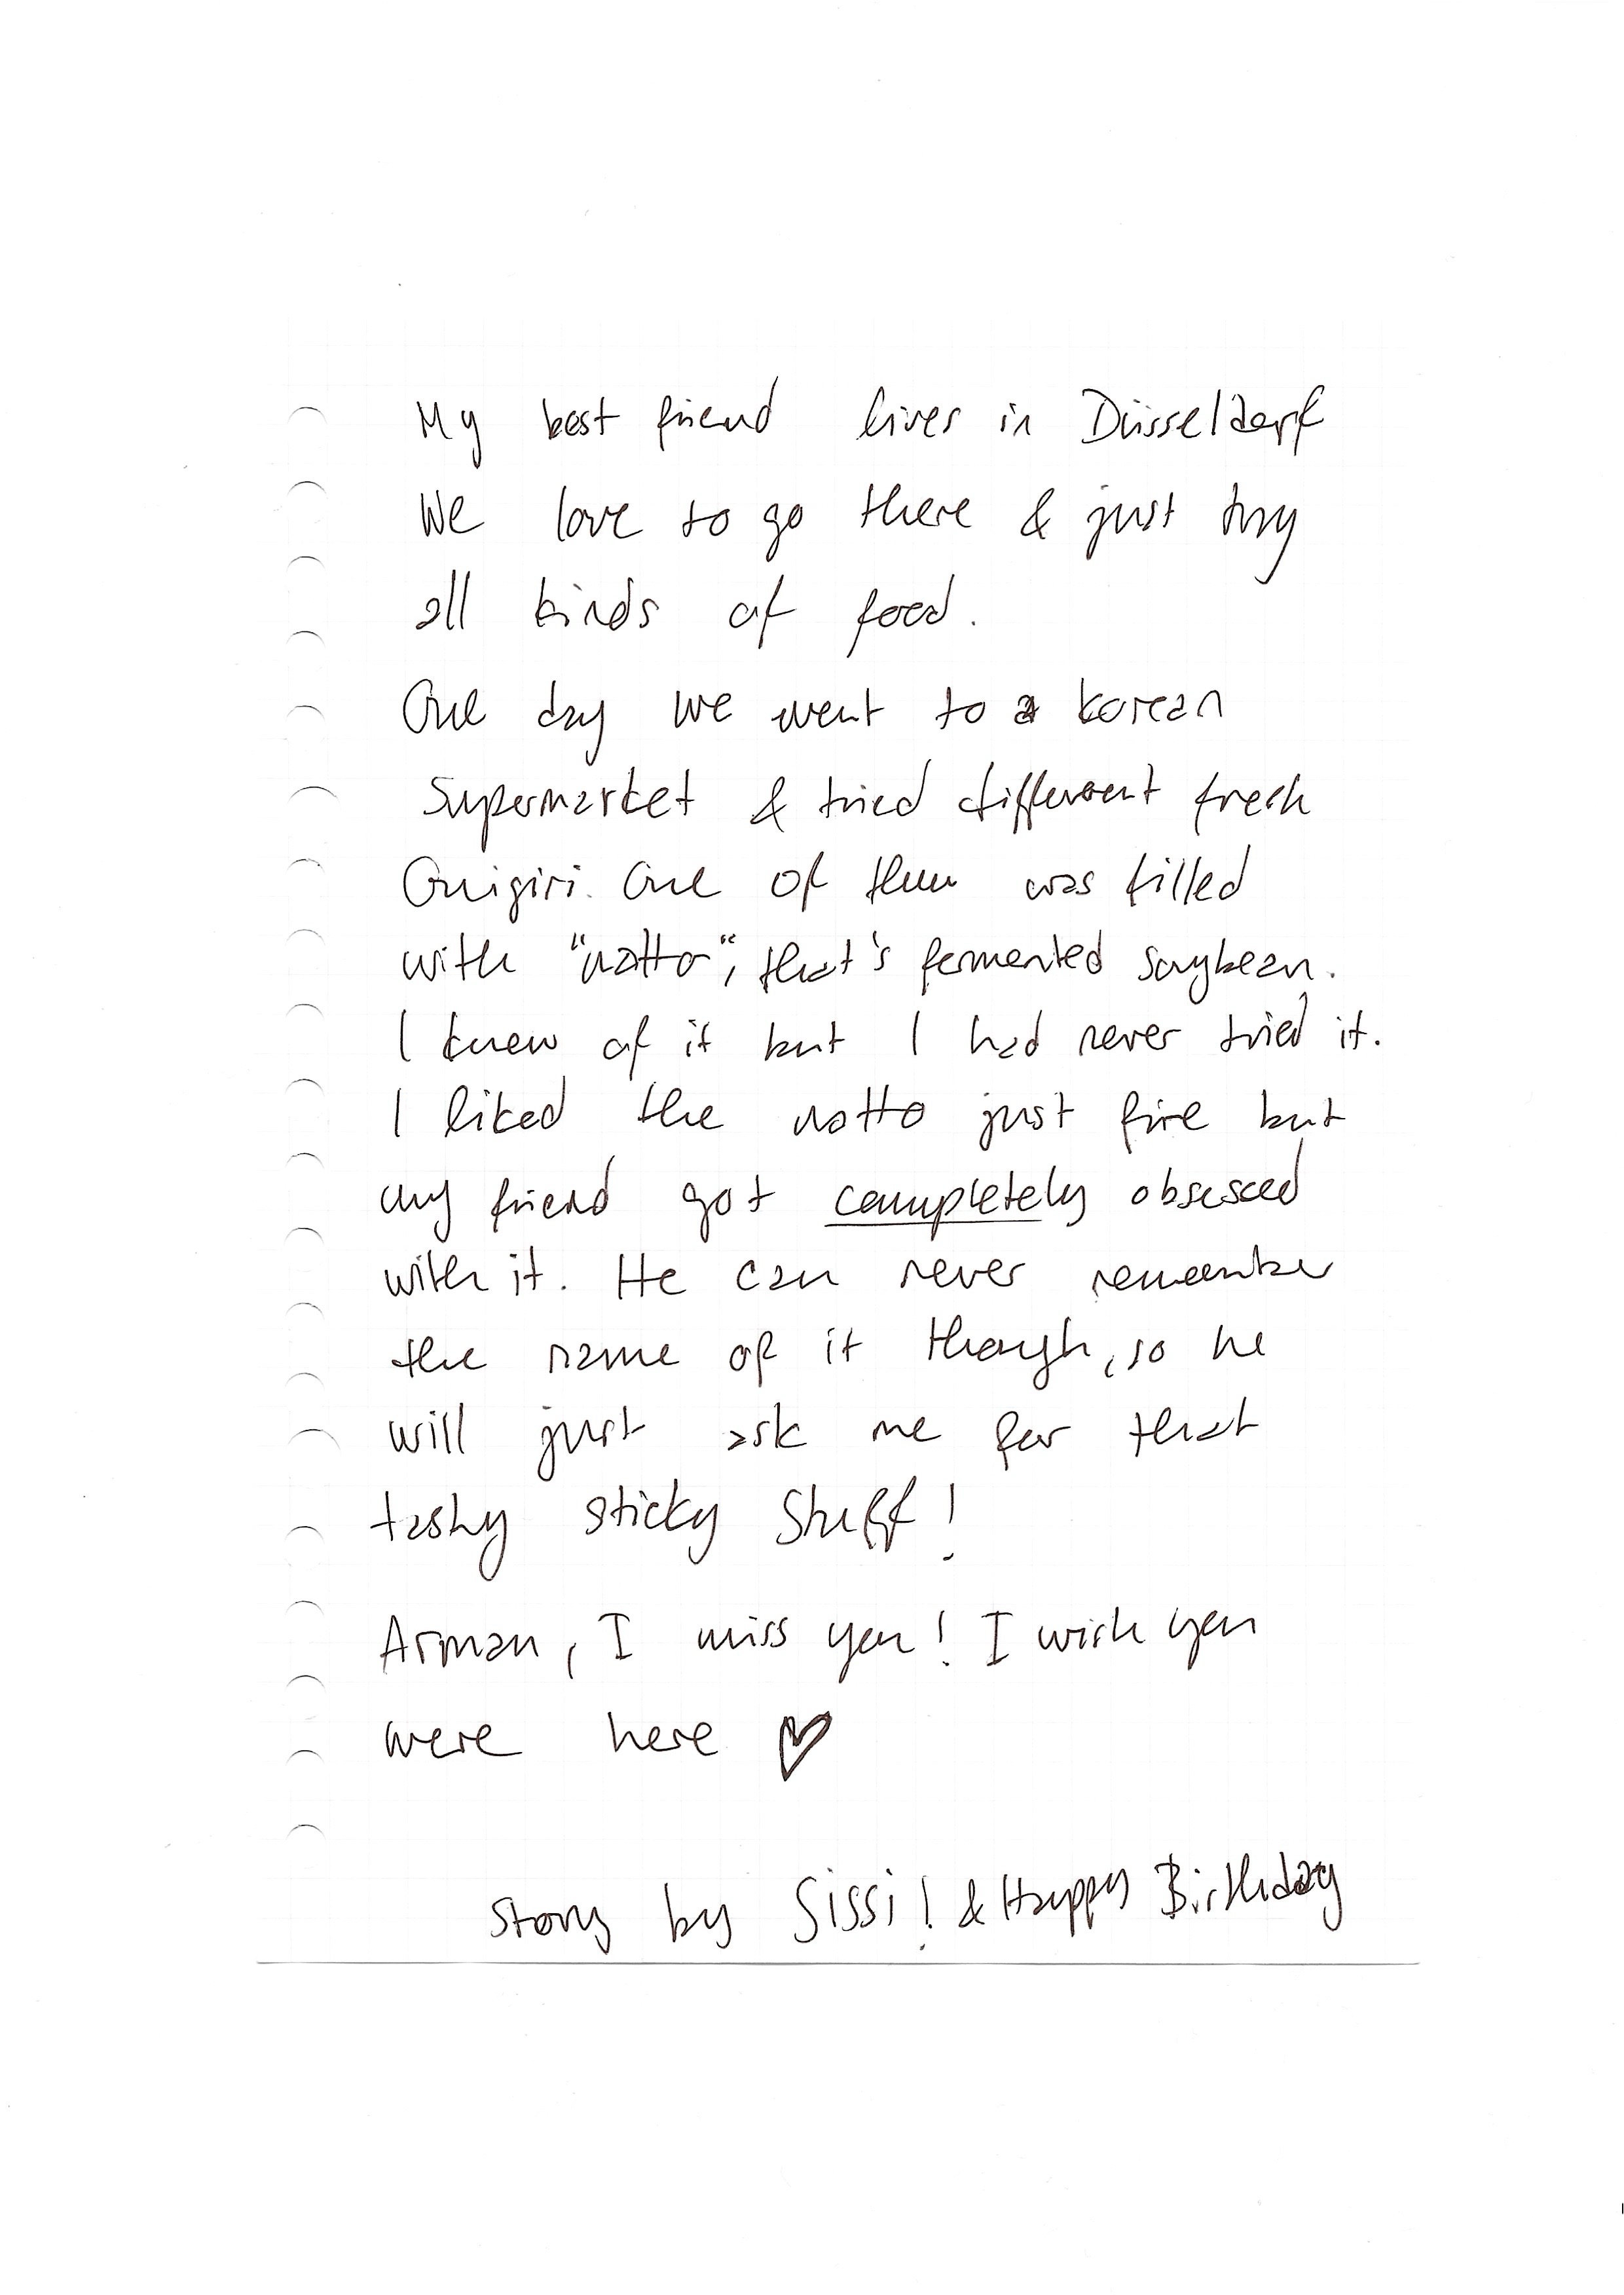 My best friend lives in Düsseldorf
We love to go there & just try
all kinds of food.
One day we went to a korean
Supermarket & tried different fresh
Onigiri. One of them was filled
with "natto", that's fermented soybean.
I knew of it but I had never tried it.
I liked the natto just fine but
my friend got completely obsessed
with it. He can never remember
the name of it though, so he
will just ask me for that
tasty sticky stuff!
Arman, I miss you! I wish you
were here ♡
Story by Sissi! & Happy Birthday